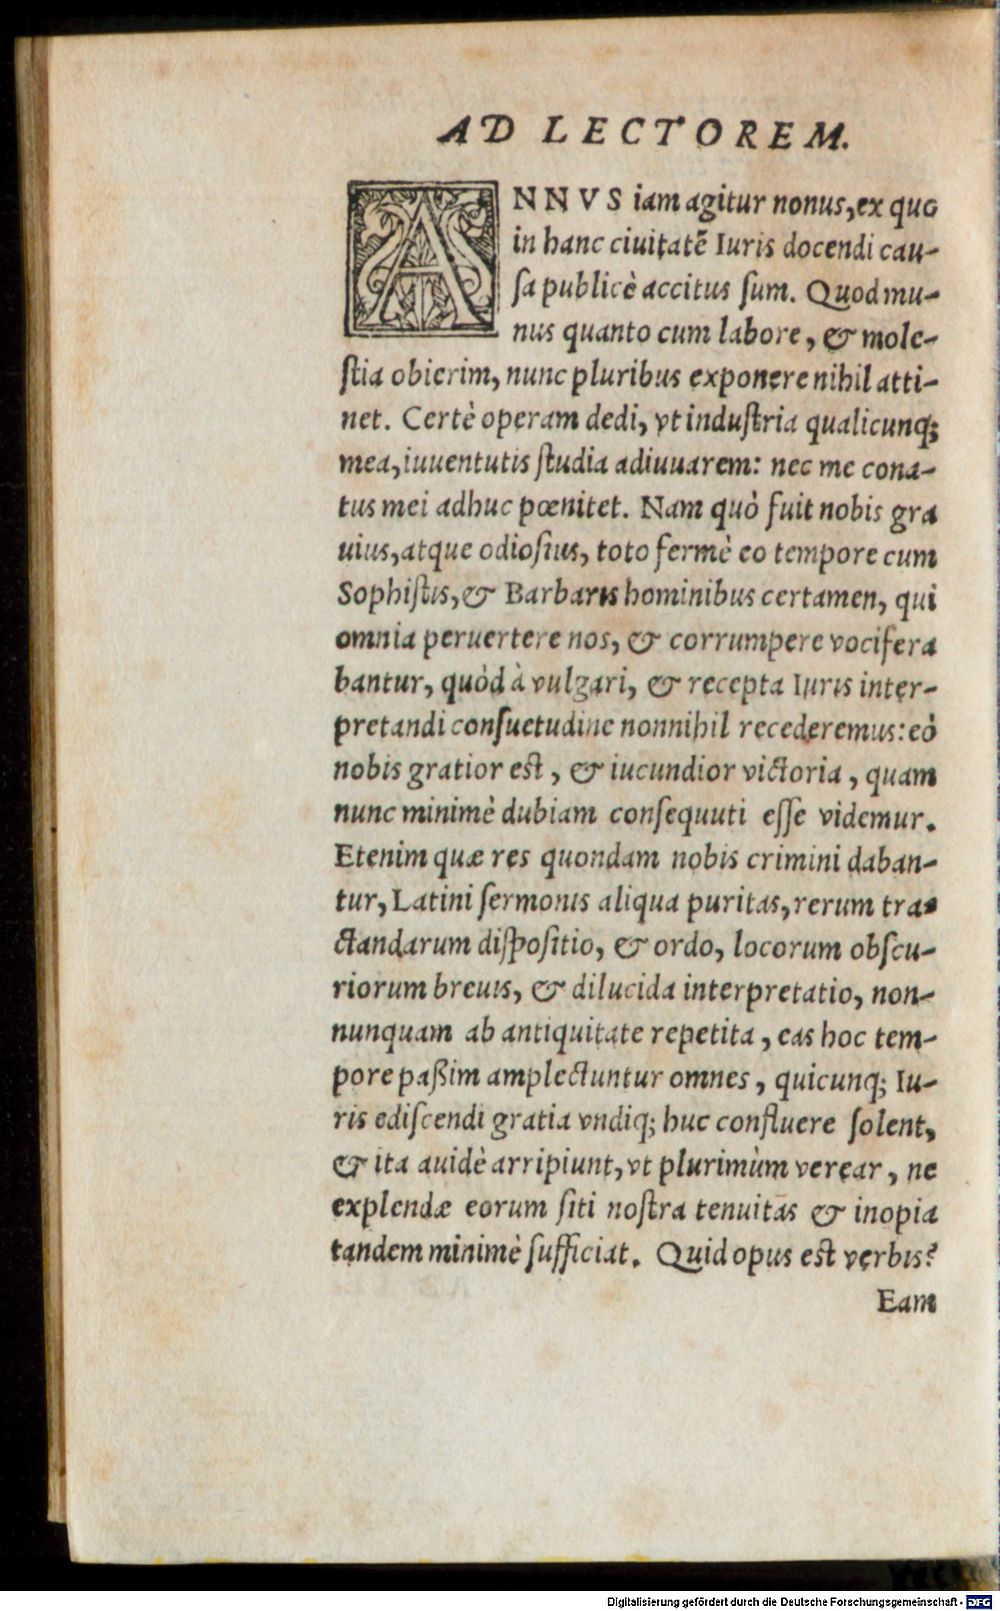 AD LECTOREM.
ANNVS iam agitur nonus, ex quo
in hanc ciuitatē Iuris docendi cau-
ſa publicè accitus ſum. Quod mu-
nus quanto cum labore, & mole-
ſtia obierim, nunc pluribus exponere nihil atti-
net. Certè operam dedi, vt induſtria qualicunq;
mea, iuuentutis ſtudia adiuuarem: nec me cona-
tus mei adhuc pœnitet. Nam quò fuit nobis gra
uius, atque odioſius, toto fermè eo tempore cum
Sophiſtis, & Barbaris hominibus certamen, qui
omnia peruertere nos, & corrumpere vocifera
bantur, quòd à vulgari, & recepta Iuris inter-
pretandi conſuetudine nonnihil recederemus: eò
nobis gratior est, & iucundior victoria, quam
nunc minimè dubiam conſequuti eſſe videmur.
Etenim quæ res quondam nobis crimini daban-
tur, Latini ſermonis aliqua puritas, rerum tra-
ctandarum diſpoſitio, & ordo, locorum obſcu-
riorum breuis, & dilucida interpretatio, non-
nunquam ab antiquitate repetita, eas hoc tem-
pore paßim amplectuntur omnes, quicunq; Iu-
ris ediſcendi gratia vndiq; huc confluere ſolent,
& ita auidè arripiunt, vt plurimùm verear, ne
explendæ eorum ſiti noſtra tenuitas & inopia
tandem minimè ſufficiat. Quid opus est verbis?
Eam
Digitalisierung gefördert durch die Deutsche Forschungsgemeinschaft - DFG